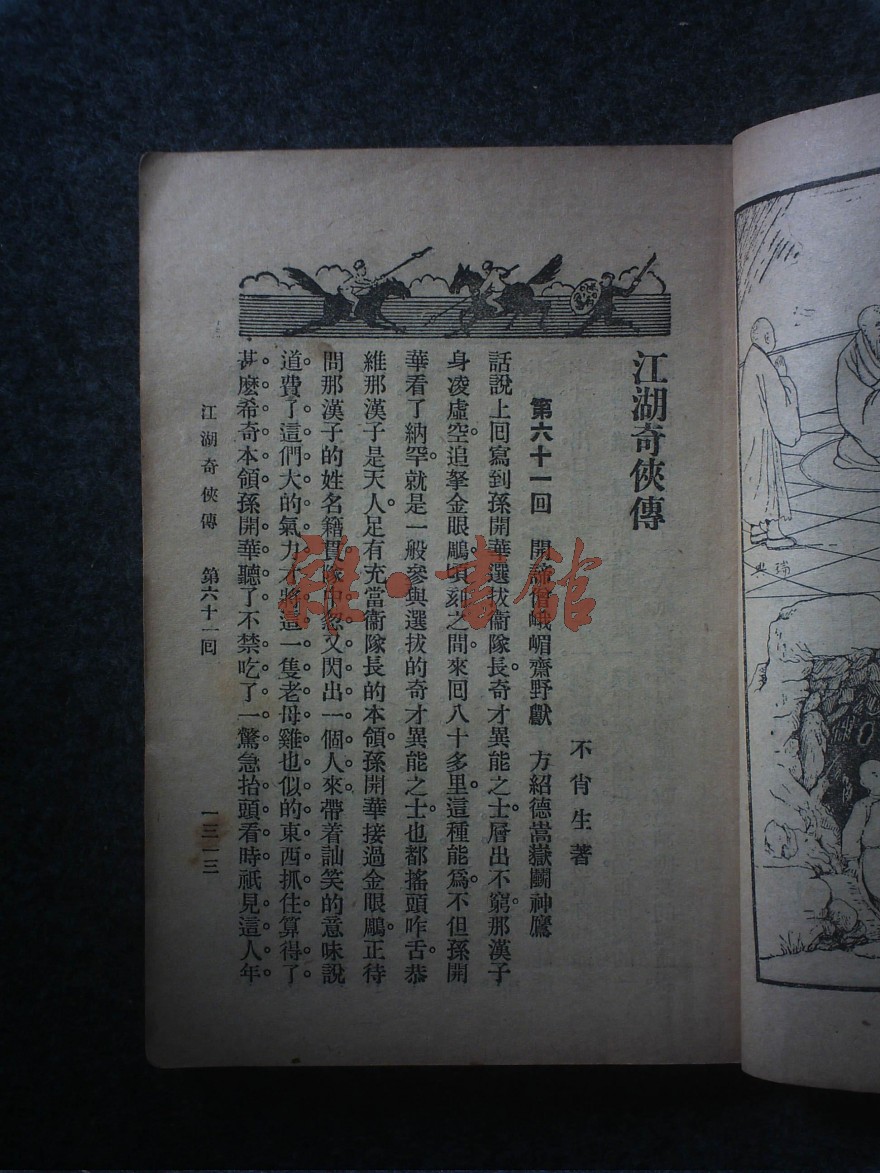 江湖奇俠傳
不肖生著
第六十一回 開諦僧峨嵋齋野獸 方紹德嵩嶽鬭神鷹
話說上回寫到孫開華選拔衞隊長奇才異能之士層出不窮那漢子
身凌虛空追拏金眼鵰頃刻之間來回八十多里這種能爲不但孫開
華看了納罕就是一般參與選拔的奇才異能之士也都搖頭咋舌恭
維那漢子是天人足有充當衞隊長的本領孫開華接過金眼鵰正待
問那漢子的姓名籍貫隊中忽又閃出一個人來帶着訕笑的意味說
道費了這們大的氣力才將這一隻老母雞也似的東西抓住算得了
甚麽希奇本領孫開華聽了不禁吃了一驚急抬頭看時祇見這人年
江湖奇俠傳 第六十一回 一三一三
雜·書館